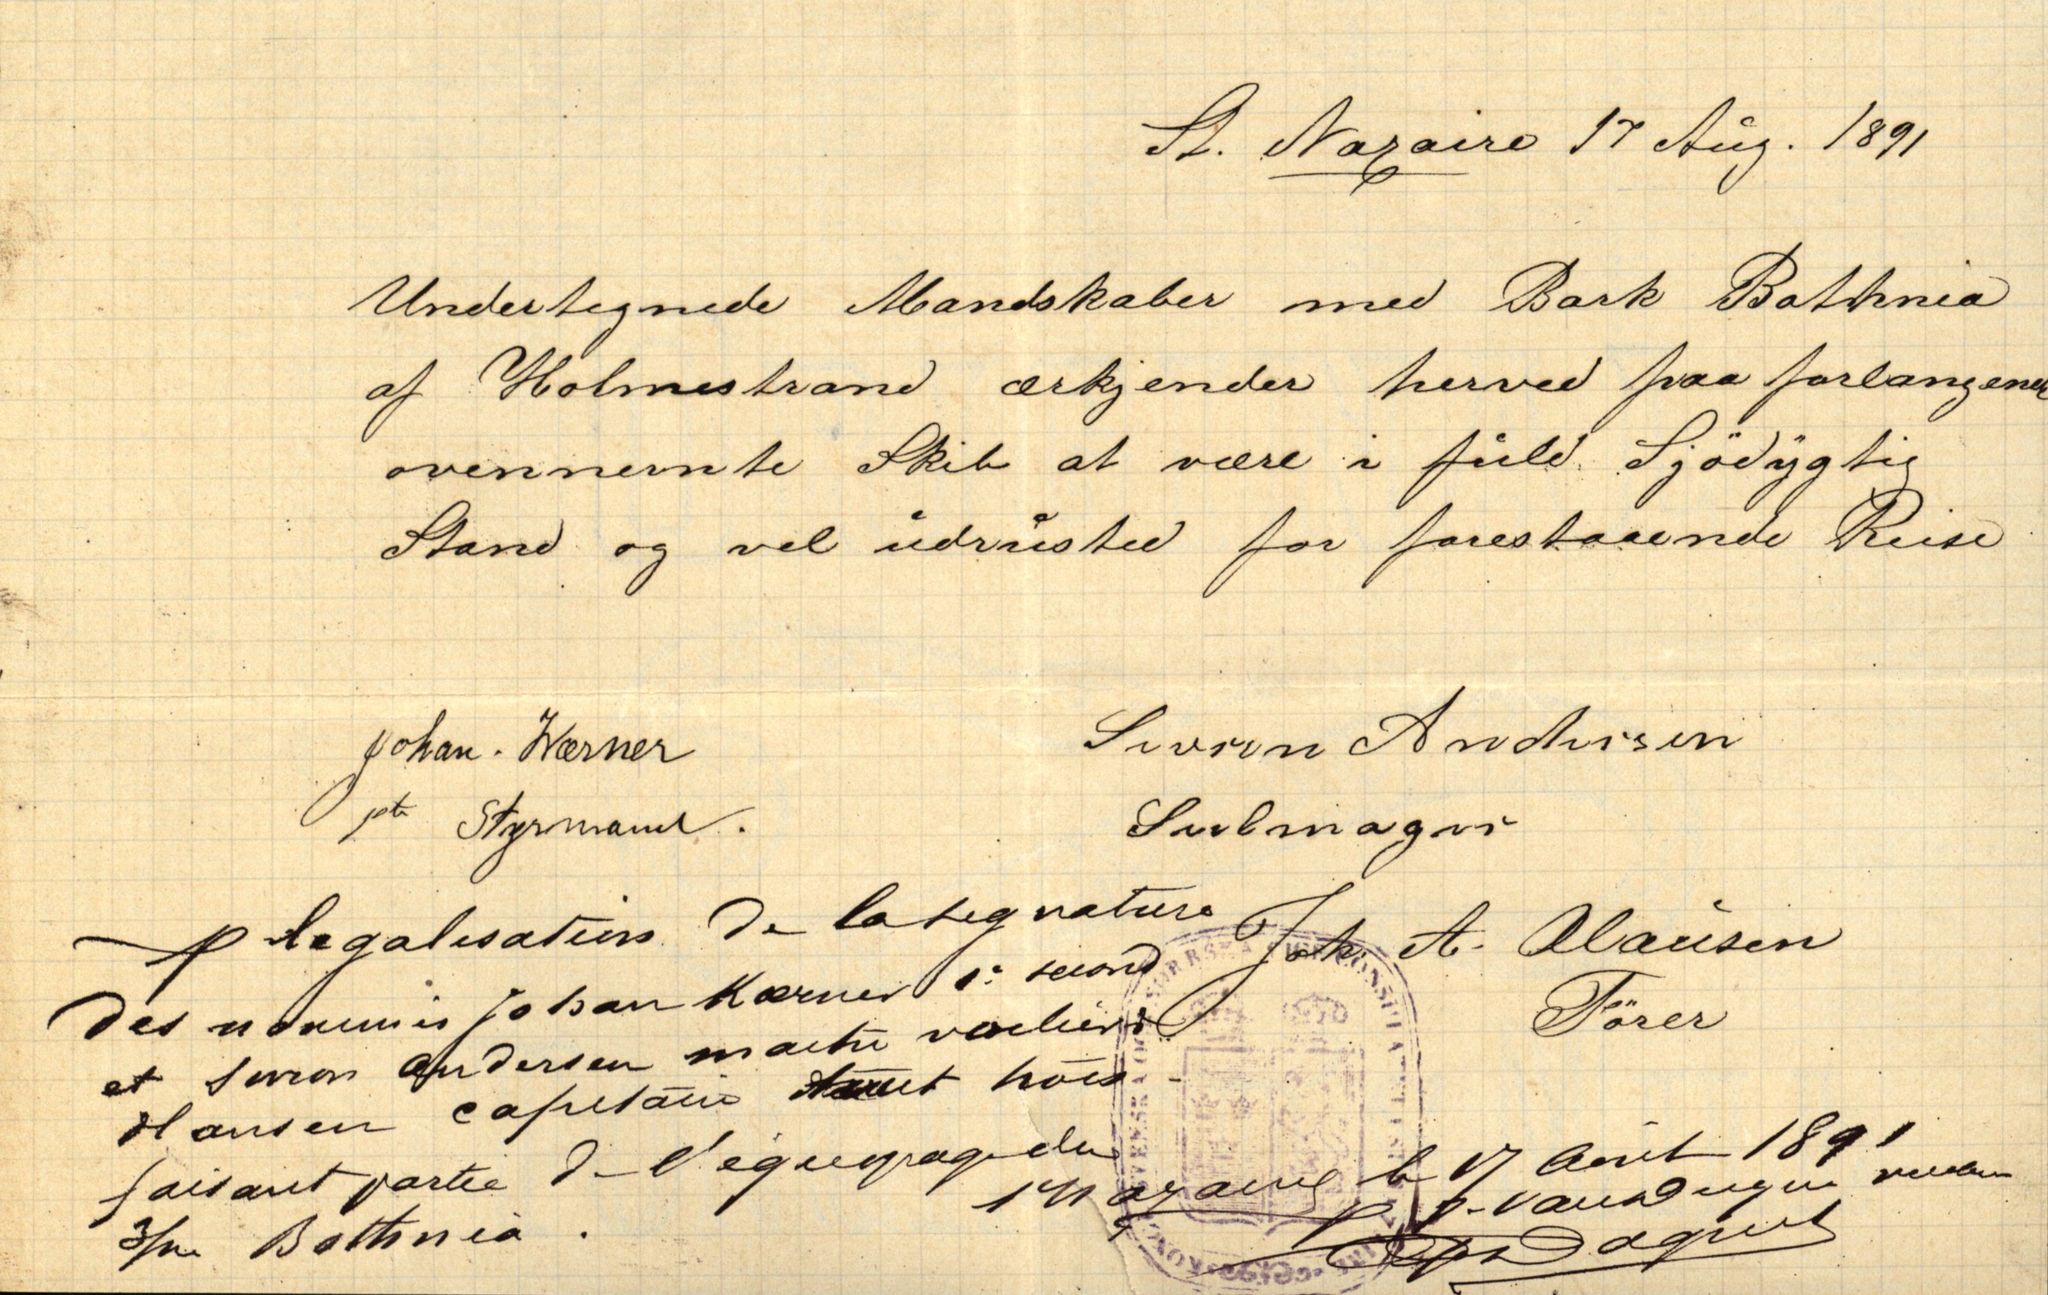 St. Nazaire 17 Aug. 1891
Undertegnede Mandskaber med Bark Bothnia
af Holmestrand ærkjender herved paa forlangener
ovennevnte Skib at være i fuld Sjödÿgtig
Stand og vel udrusted for forestaaende Reise
Johan. Wærner
Styrmand.
Sivron Andersen
Seilmager
Joh. A. Clausen
Förer
legalisation de la signature
des nommés Johan Kærner 1r second
et Sivron Andersen maitre voilier &
Hansen capitaine tous
faisant partie de l'équipage du
3/m Bothnia.
St Nazaire le 17 Août 1891